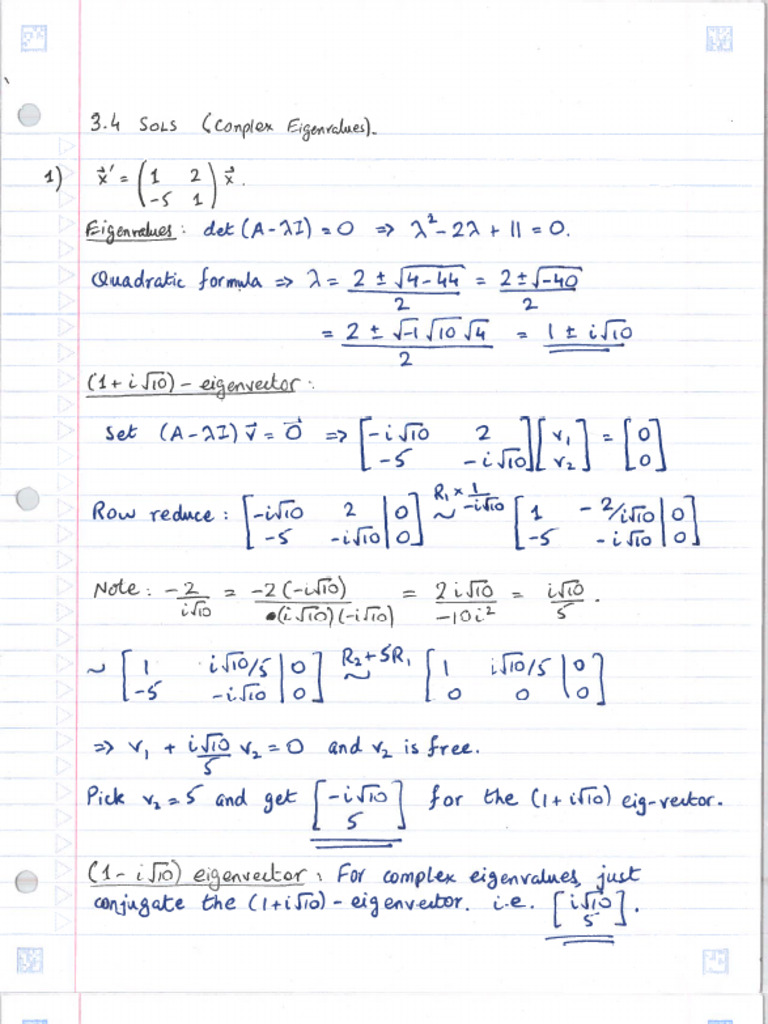 3.4 SOLS (Conplex Eigenvalues).
1) x⃗' = (1 2; -5 1) x⃗.
Eigenvalues: det (A-λI) = 0 => λ² - 2λ + 11 = 0.
Quadratic formula => λ = (2 ± √(4-44))/2 = (2 ± √-40)/2
= (2 ± √-1 √10 √4)/2 = 1 ± i√10
(1 + i√10) - eigenvector:
Set (A-λI) v⃗ = 0⃗ => [-i√10 2; -5 -i√10] [v₁; v₂] = [0; 0]
Row reduce: [-i√10 2 | 0; -5 -i√10 | 0] R₁ × 1/-i√10 ~ [1 -2/i√10 | 0; -5 -i√10 | 0]
Note: -2/i√10 = -2(-i√10)/(i√10)(-i√10) = 2i√10/-10i² = i√10/5.
~ [1 i√10/5 | 0; -5 -i√10 | 0] R₂+5R₁ ~ [1 i√10/5 | 0; 0 0 | 0]
=> v₁ + i√10/5 v₂ = 0 and v₂ is free.
Pick v₂ = 5 and get [-i√10; 5] for the (1+i√10) eig-vector.
(1 - i√10) eigenvector: For complex eigenvalues, just
conjugate the (1+i√10) - eigenvector. i.e. [i√10; 5].